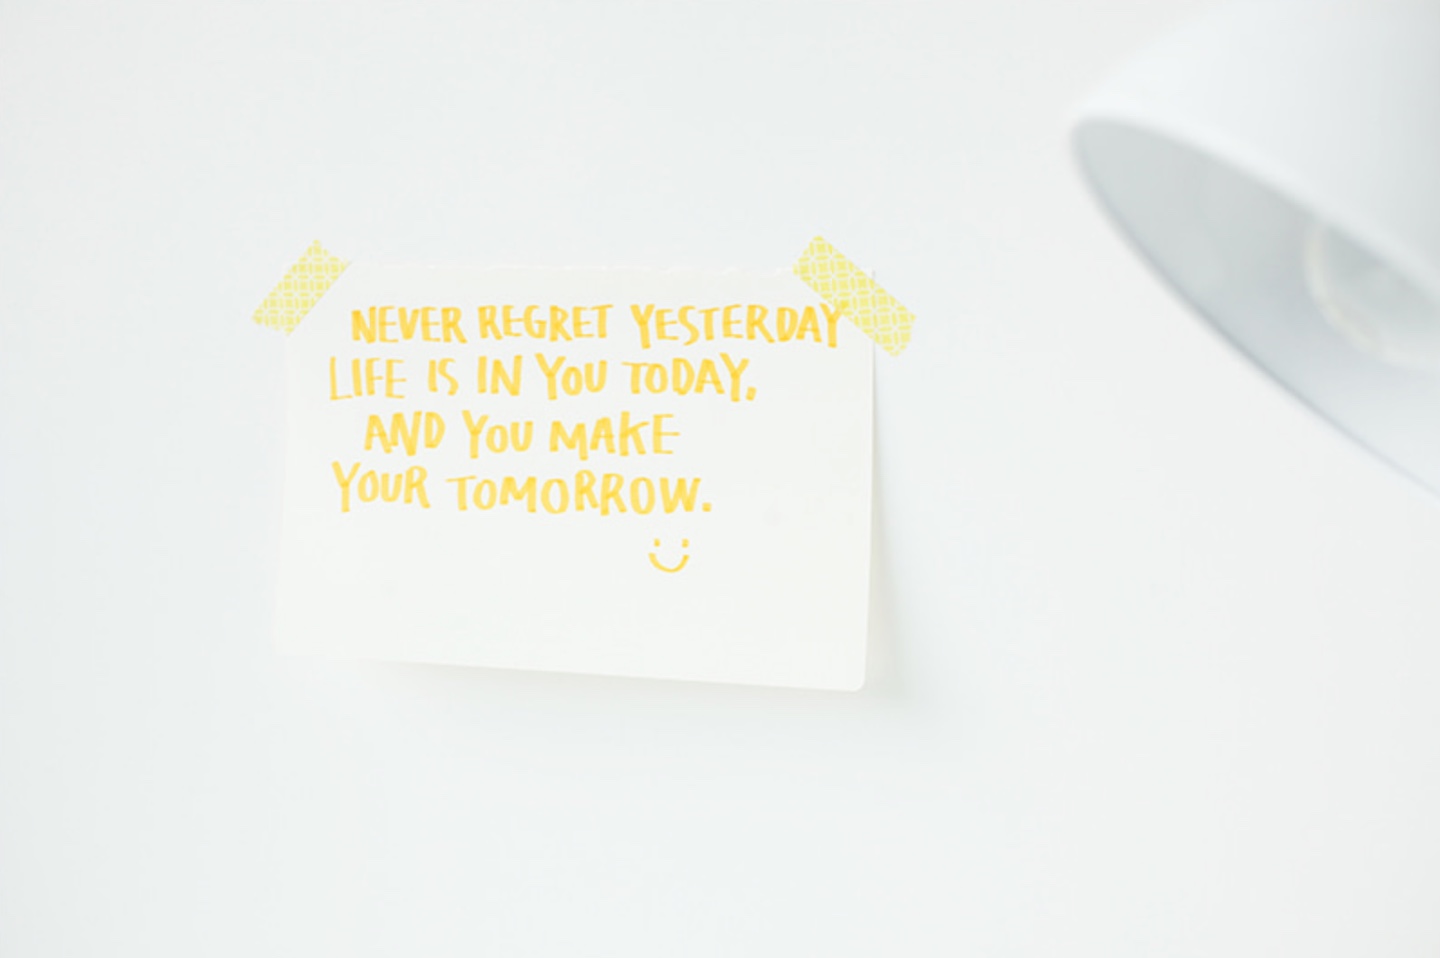 NEVER REGRET YESTERDAY
LIFE IS IN YOU TODAY,
AND YOU MAKE
YOUR TOMORROW.